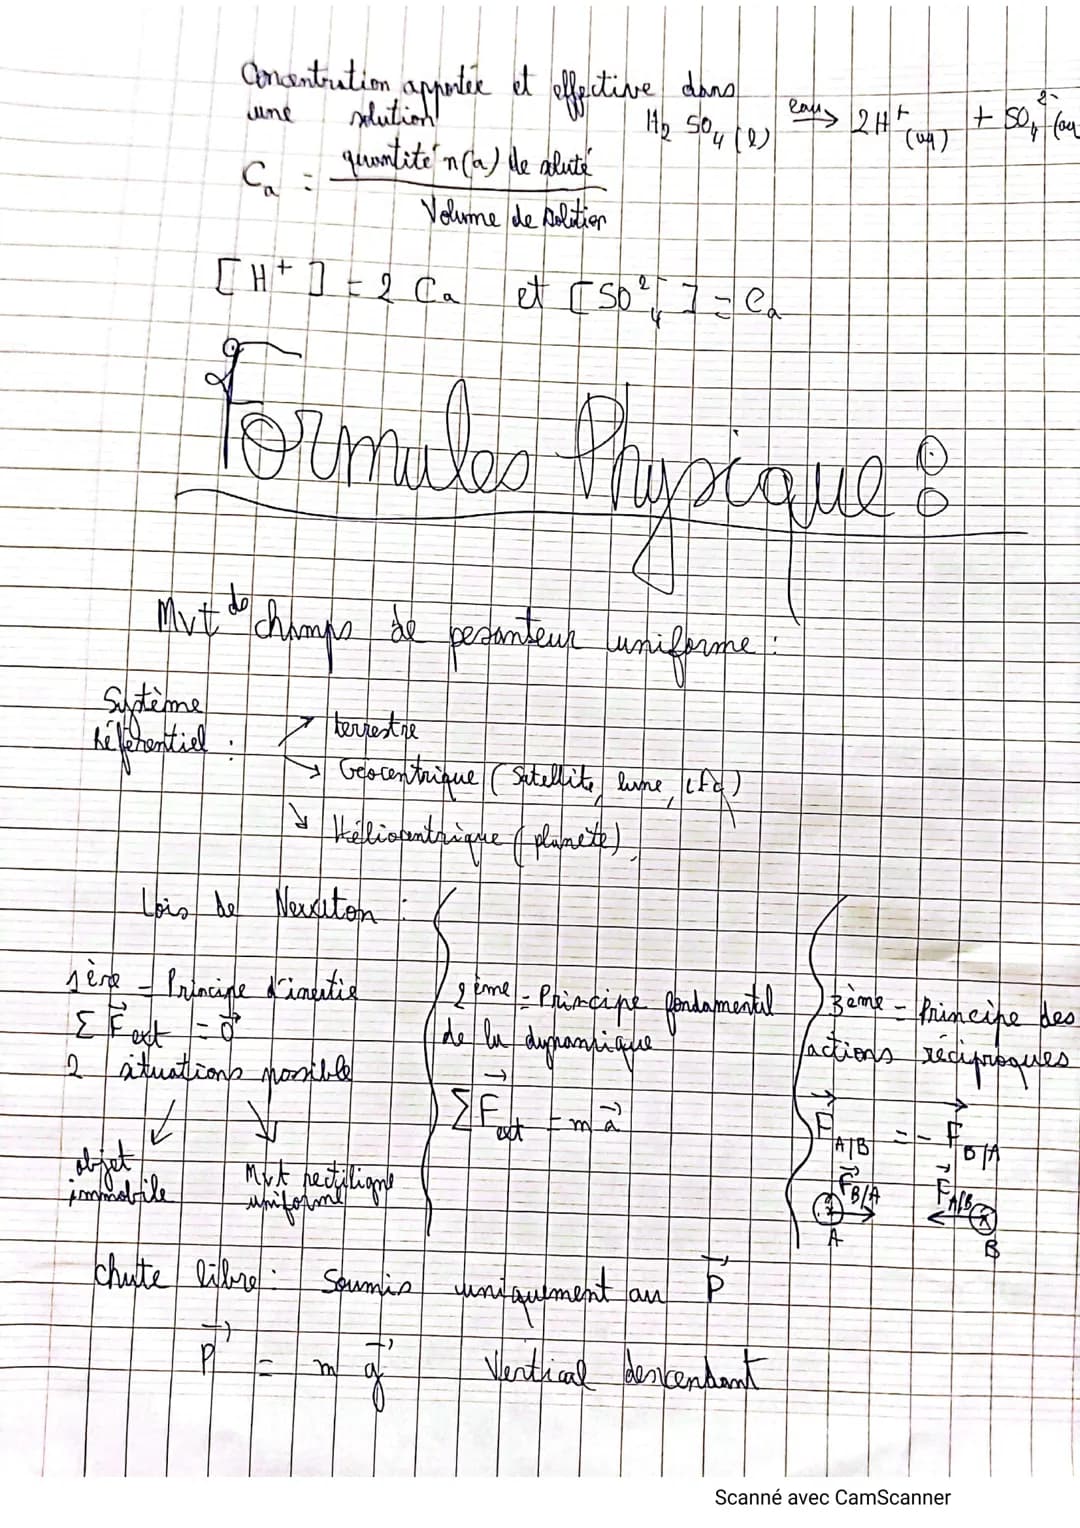 Concentration apportée et effective dans
une solution
H₂ SO₄ (l) eau→ 2H⁺(aq) + SO₄²⁻(aq
Cₐ = quantité n(a) de soluté
Volume de solution
[H⁺] = 2 Cₐ et [SO₄²⁻] = Cₐ
Formules Physique :
Mvt de champs de pesanteur uniforme :
Système
Référentiel : ↗ terrestre
↘ Géocentrique (Satellite, lune,
↘ Héliocentrique (planète)
Lois de Newton :
1ère - Principe d'inertie
Σ F⃗ext = 0⃗
2 situations possible
↙ ↘
objet
immobile
Mvt rectiligne
uniforme
2ème - Principe fondamental
de la dynamique
Σ F⃗ext = m a⃗
3ème - Principe des
actions réciproques
F⃗A/B = - F⃗B/A
F⃗B/A F⃗A/B
A B
chute libre : Soumis uniquement au P⃗
P⃗ = m g⃗ Vertical descendant
Scanné avec CamScanner